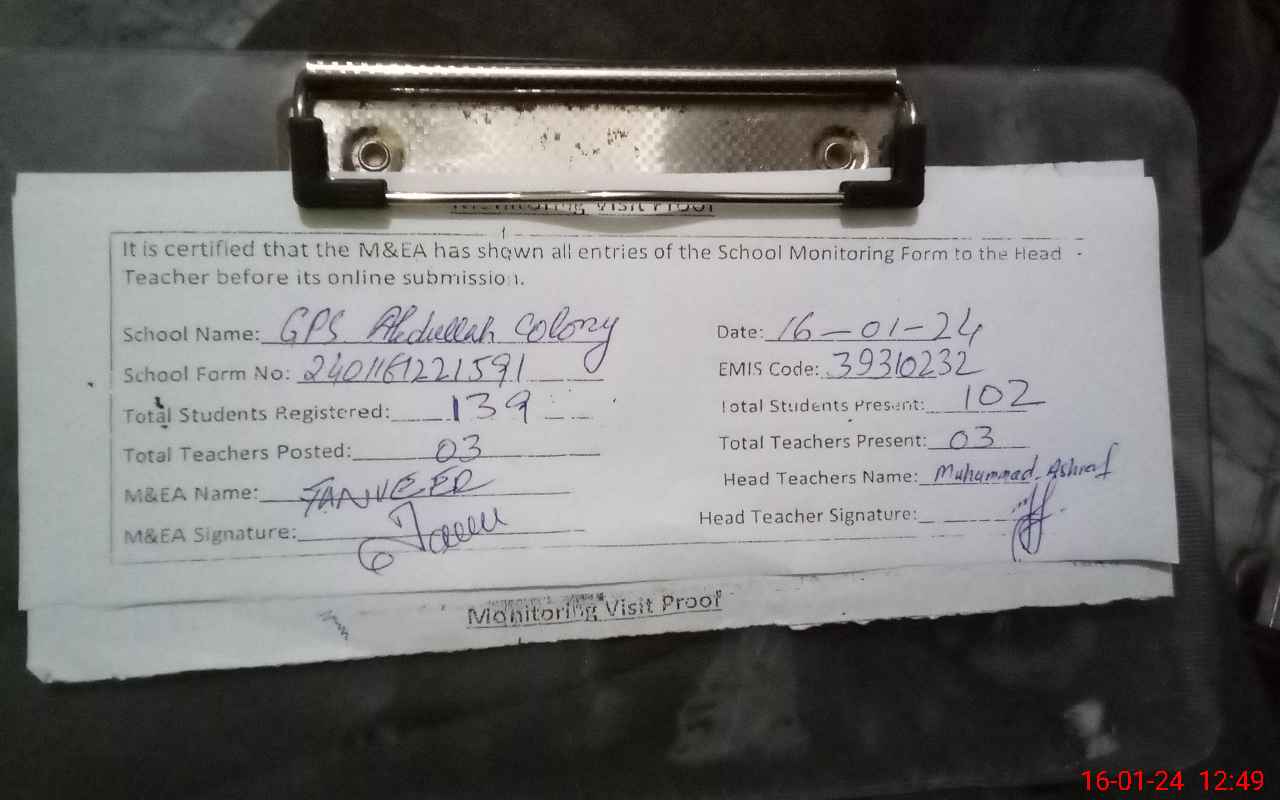 Monitoring Visit Proof
It is certified that the M&EA has shown all entries of the School Monitoring Form to the Head
Teacher before its online submission.
School Name: GPS Abdullah Colony Date: 16-01-24
School Form No: 2401161221591 EMIS Code: 39310232
Total Students Registered: 139 Total Students Present: 102
Total Teachers Posted: 03 Total Teachers Present: 03
M&EA Name: TANVEER Head Teachers Name: Muhammad Ashraf
M&EA Signature: Head Teacher Signature:
Monitoring Visit Proof
16-01-24 12:49